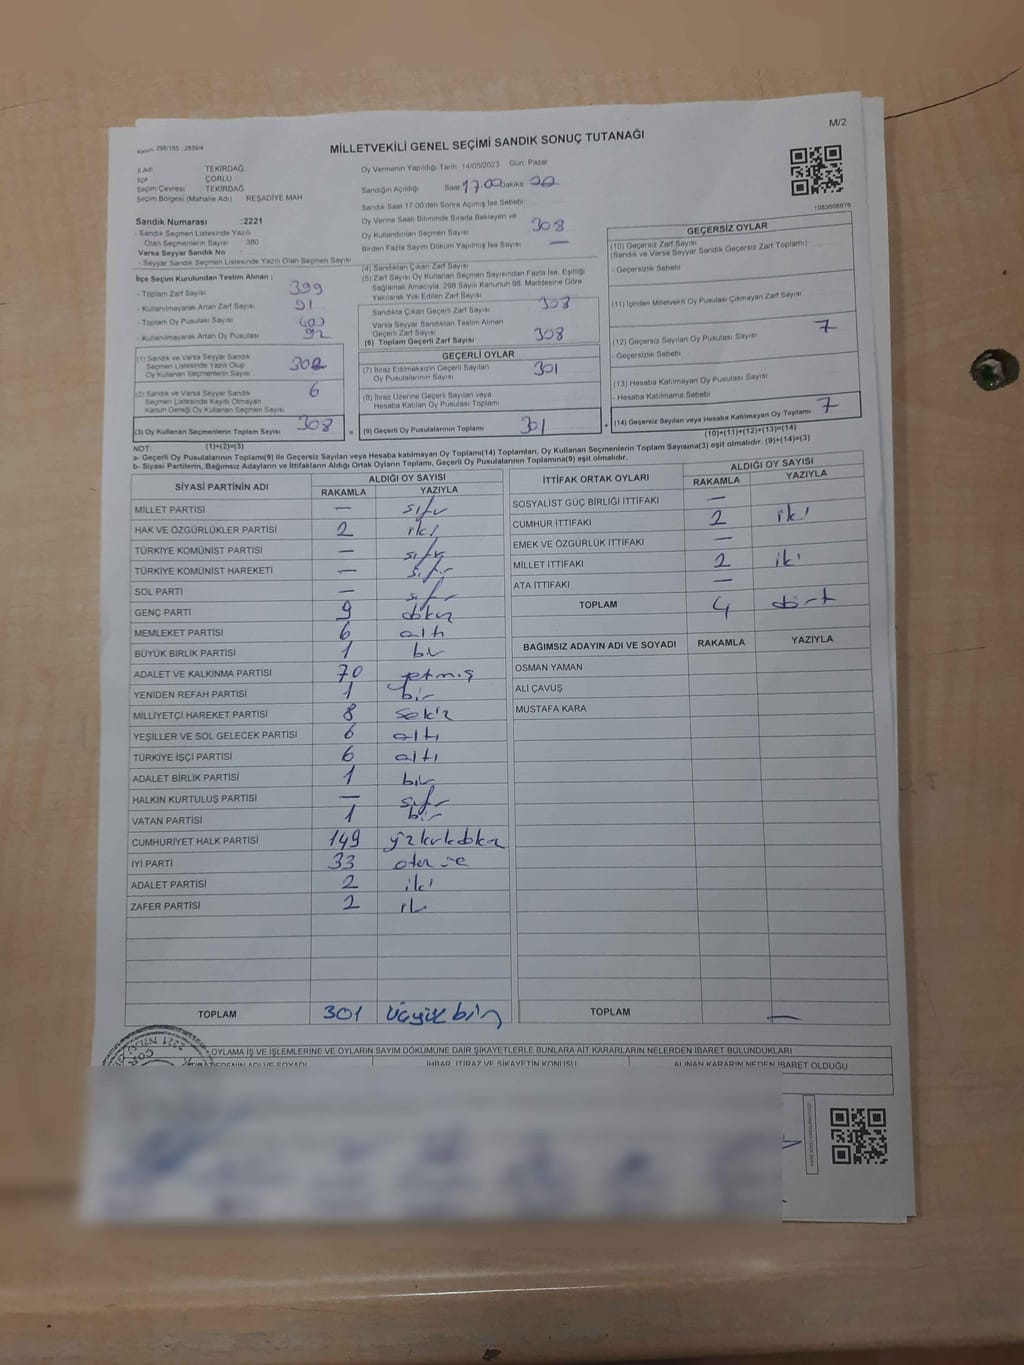 M/2
Kanun: 298/105 : 2839/4
MİLLETVEKİLİ GENEL SEÇİMİ SANDIK SONUÇ TUTANAĞI
İl Adı : TEKİRDAĞ
İlçe : ÇORLU
Seçim Çevresi : TEKİRDAĞ
Seçim Bölgesi (Mahalle Adı) REŞADİYE MAH
Sandık Numarası :2221
- Sandık Seçmen Listesinde Yazılı
Olan Seçmenlerin Sayısı 380
Varsa Seyyar Sandık No :
- Seyyar Sandık Seçmen Listesinde Yazılı Olan Seçmen Sayısı
İlçe Seçim Kurulundan Teslim Alınan :
- Toplam Zarf Sayısı 399
- Kullanılmayarak Artan Zarf Sayısı 91
- Toplam Oy Pusulası Sayısı
- Kullanılmayarak Artan Oy Pusulası 92
(1) Sandık ve Varsa Seyyar Sandık
Seçmen Listesinde Yazılı Olup
Oy Kullanan Seçmenlerin Sayısı 302
(2) Sandık ve Varsa Seyyar Sandık
Seçmen Listesinde Kayıtlı Olmayan
Kanun Gereği Oy Kullanan Seçmen Sayısı 6
(3) Oy Kullanan Seçmenlerin Toplam Sayısı 308
(1)+(2)=(3)
Oy Vermenin Yapıldığı Tarih :14/05/2023 Gün: Pazar
Sandığın Açıldığı Saat 17.00 Dakika
Sandık Saat 17.00'den Sonra Açılmış İse Sebebi
Oy Verme Saati Bitiminde Sırada Bekleyen ve
Oy Kullandırılan Seçmen Sayısı 308
Birden Fazla Sayım Dökümü Yapılmış İse Sayısı —
(4) Sandıktan Çıkan Zarf Sayısı
(5) Zarf Sayısı Oy Kullanan Seçmen Sayısından Fazla İse, Eşitliği
Sağlamak Amacıyla, 298 Sayılı Kanunun 98. Maddesine Göre
Yakılarak Yok Edilen Zarf Sayısı
Sandıkta Çıkan Geçerli Zarf Sayısı 308
Varsa Seyyar Sandıktan Teslim Alınan
Geçerli Zarf Sayısı
(6) Toplam Geçerli Zarf Sayısı 308
GEÇERLİ OYLAR
(7) İtiraz Edilmeksizin Geçerli Sayılan
Oy Pusulalarının Sayısı 301
(8) İtiraz Üzerine Geçerli Sayılan veya
Hesaba Katılan Oy Pusulası Toplamı
= (9) Geçerli Oy Pusulalarının Toplamı 301
1083606876
GEÇERSİZ OYLAR
(10) Geçersiz Zarf Sayısı
(Sandık ve Varsa Seyyar Sandık Geçersiz Zarf Toplamı)
- Geçersizlik Sebebi
(11) İçinden Milletvekili Oy Pusulası Çıkmayan Zarf Sayısı
(12) Geçersiz Sayılan Oy Pusulası Sayısı 7
- Geçersizlik Sebebi
(13) Hesaba Katılmayan Oy Pusulası Sayısı
- Hesaba Katılmama Sebebi
+ (14) Geçersiz Sayılan veya Hesaba Katılmayan Oy Toplamı 7
(10)+(11)+(12)+(13)=(14)
NOT:
a- Geçerli Oy Pusulalarının Toplamı(9) ile Geçersiz Sayılan veya Hesaba katılmayan Oy Toplamı(14) Toplamları, Oy Kullanan Seçmenlerin Toplam Sayısına(3) eşit olmalıdır. (9)+(14)=(3)
b- Siyasi Partilerin, Bağımsız Adayların ve İttifakların Aldığı Ortak Oyların Toplamı, Geçerli Oy Pusulalarının Toplamına(9) eşit olmalıdır.
SİYASİ PARTİNİN ADI ALDIĞI OY SAYISI
RAKAMLA YAZIYLA
MİLLET PARTİSİ — sıfır
HAK VE ÖZGÜRLÜKLER PARTİSİ 2 iki
TÜRKİYE KOMÜNİST PARTİSİ — sıfır
TÜRKİYE KOMÜNİST HAREKETİ — sıfır
SOL PARTİ — sıfır
GENÇ PARTİ 9 dokuz
MEMLEKET PARTİSİ 6 altı
BÜYÜK BİRLİK PARTİSİ 1 bir
ADALET VE KALKINMA PARTİSİ 70 yetmiş
YENİDEN REFAH PARTİSİ 1 bir
MİLLİYETÇİ HAREKET PARTİSİ 8 sekiz
YEŞİLLER VE SOL GELECEK PARTİSİ 6 altı
TÜRKİYE İŞÇİ PARTİSİ 6 altı
ADALET BİRLİK PARTİSİ 1 bir
HALKIN KURTULUŞ PARTİSİ — sıfır
VATAN PARTİSİ 1 bir
CUMHURİYET HALK PARTİSİ 149 yüzkırkdokuz
İYİ PARTİ 33 otuz üç
ADALET PARTİSİ 2 iki
ZAFER PARTİSİ 2 iki
TOPLAM 301 üçyüz bir
İTTİFAK ORTAK OYLARI ALDIĞI OY SAYISI
RAKAMLA YAZIYLA
SOSYALİST GÜÇ BİRLİĞİ İTTİFAKI —
CUMHUR İTTİFAKI 2 iki
EMEK VE ÖZGÜRLÜK İTTİFAKI —
MİLLET İTTİFAKI 2 iki
ATA İTTİFAKI —
TOPLAM 4 dört
BAĞIMSIZ ADAYIN ADI VE SOYADI RAKAMLA YAZIYLA
OSMAN YAMAN
ALİ ÇAVUŞ
MUSTAFA KARA
TOPLAM —
OYLAMA İŞ VE İŞLEMLERİNE VE OYLARIN SAYIM DÖKÜMÜNE DAİR ŞİKAYETLERLE BUNLARA AİT KARARLARIN NELERDEN İBARET BULUNDUKLARI
ADI VE SOYADI İHBAR, İTİRAZ VE ŞİKAYETİN KONUSU ALINAN KARARIN NEDEN İBARET OLDUĞU